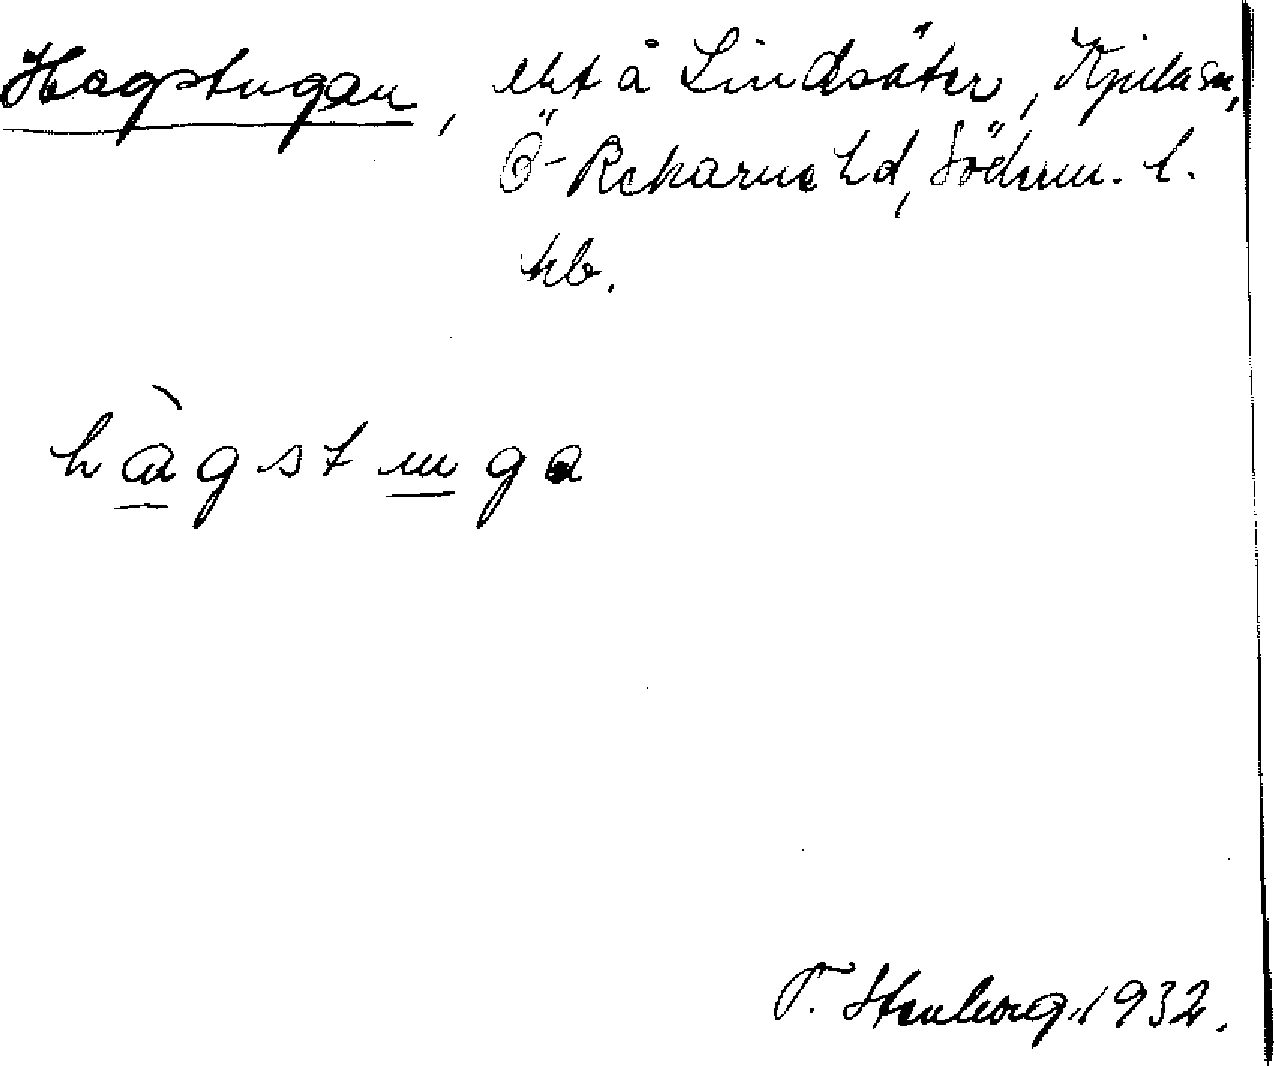 Hagstugan, lht å Lindsäter, Kjula sn,
Ö-Rekarne hd, Söderm. l.
hb.
hàgstuga
T. Stenborg 1932.